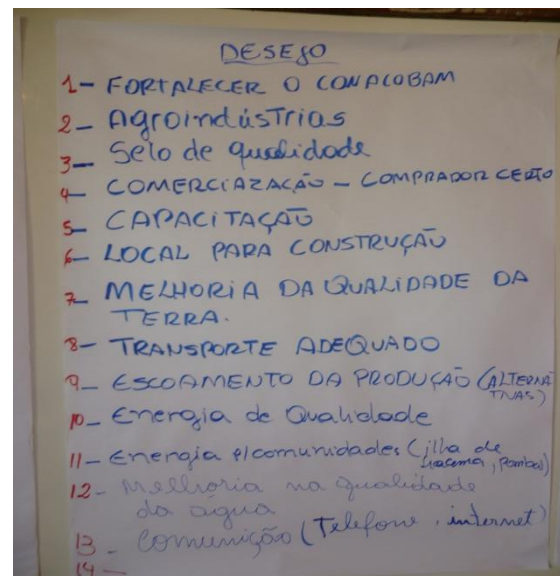 DESEJO
1- FORTALECER O CONACOBAM
2- Agroindústrias
3- Selo de qualidade
4- COMERCIAZAÇÃO - COMPRADOR CERTO
5- CAPACITAÇÃO
6- LOCAL PARA CONSTRUÇÃO
7- MELHORIA DA QUALIDADE DA
TERRA.
8- TRANSPORTE ADEQUADO
9- ESCOAMENTO DA PRODUÇÃO (ALTERNA
TIVAS)
10- Energia de Qualidade
11- Energia p/comunidades (ilha de
Iracema, Pombal)
12- Melhoria na qualidade
da água
13- Comunição (Telefone, internet)
14-